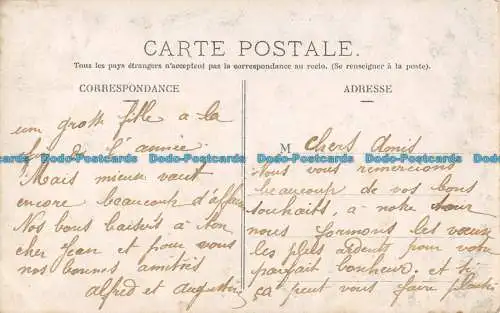 CARTE POSTALE.
Tous les pays étrangers n'acceptent pas la correspondance au recto. (Se renseigner à la poste).
CORRESPONDANCE
ADRESSE
une grosse fille a la
fin de l'année
Mais mieux vaut
encore beaucoup d'
Nos bons baisers à ton
cher Jean et pour vous
nos bonnes amitiés
alfred et augustine
M chers Amis
Nous vous remercions
beaucoup de vos bons
souhaits, à notre tour
nous formons les vœux
les plus ardents pour votre
parfait bonheur. et si
ça peut vous faire plaisir
Dodo-Postcards Dodo-Postcards Dodo-Postcards Dodo-Postcards Dodo-Postcards Dodo-Postcards